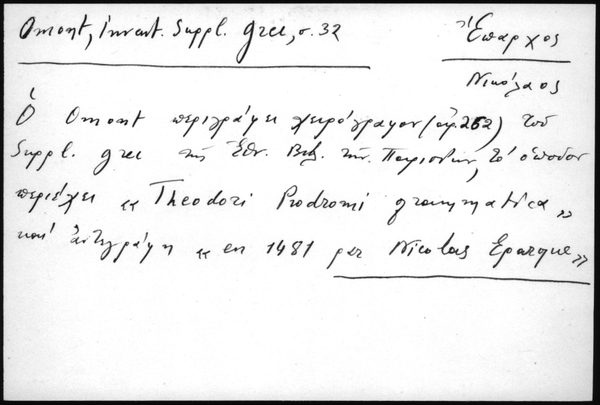 Omont, Invent. Suppl. grec, σ. 32
Ἔπαρχος
Νικόλαος
Ὁ Omont περιγράφει χειρόγραφον (ἀρ. 262) τοῦ
Suppl. grec τῆς Ἐθν. Βιβ. τῶν Παρισίων, τό ὁποῖον
περιέχει « Theodori Prodromi grammatica »
καί ἀντεγράφη « en 1481 par Nicolas Eparque »